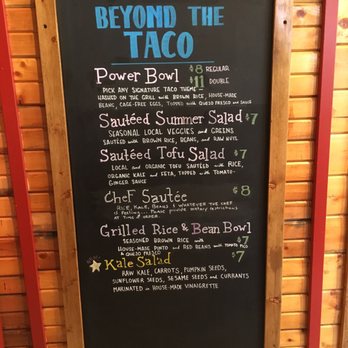 BEYOND THE
TACO
Power Bowl $8 REGULAR
$11 DOUBLE
PICK ANY SIGNATURE TACO THEME
HASHED ON THE GRILL WITH BROWN RICE, HOUSE-MADE
BEANS, CAGE-FREE EGGS, TOPPED WITH QUESO FRESCO AND SAUCE
Sautéed Summer Salad $7
SEASONAL LOCAL VEGGIES and GREENS
SAUTÉED WITH BROWN RICE, BEANS, and RAW NUTS
Sautéed Tofu Salad $7
LOCAL and ORGANIC TOFU SAUTÉED with RICE,
ORGANIC KALE and FETA, TOPPED with TOMATO-
GINGER SAUCE
CHEF SAUTÉE $8
RICE, KALE, BEANS & WHATEVER THE CHEF
IS FEELING... PLEASE PROVIDE DIETARY RESTRICTIONS
AT TIME of ORDER.
Grilled Rice & Bean Bowl
SEASONED BROWN RICE with $7
HOUSE-MADE PINTO and RED BEANS WITH TOMATO PICO
& QUESO FRESCO
Kale Salad $7
RAW KALE, CARROTS, PUMPKIN SEEDS,
SUNFLOWER SEEDS, SESAME SEEDS and CURRANTS
MARINATED in HOUSE-MADE VINAIGRETTE